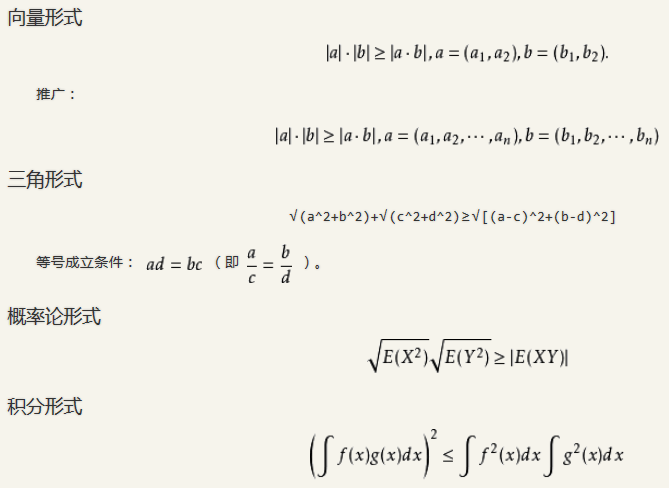 向量形式
|a|·|b| ≥ |a·b|, a = (a₁, a₂), b = (b₁, b₂).
推广：
|a|·|b| ≥ |a·b|, a = (a₁, a₂, ···, aₙ), b = (b₁, b₂, ···, bₙ)
三角形式
√(a^2+b^2)+√(c^2+d^2)≥√[(a-c)^2+(b-d)^2]
等号成立条件： ad = bc （即 a/c = b/d ）。
概率论形式
√E(X²)√E(Y²) ≥ |E(XY)|
积分形式
(∫f(x)g(x)dx)² ≤ ∫f²(x)dx∫g²(x)dx